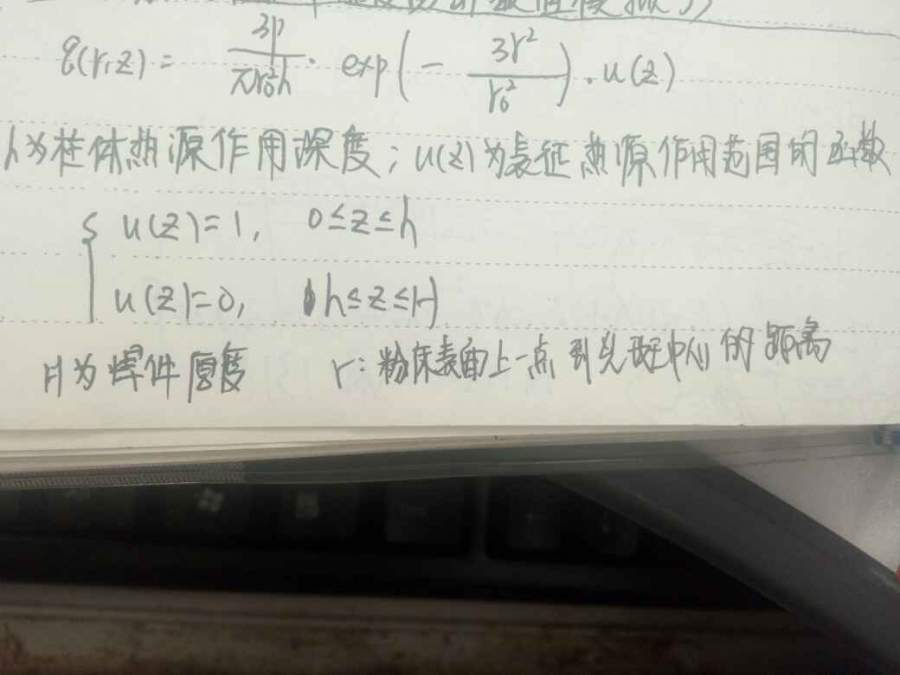 q(r,z) = 3p/πr₀²h · exp(- 3r²/r₀²) · u(z)
h为柱体热源作用深度；u(z)为表征热源作用范围的函数
{ u(z)=1, 0≤z≤h
u(z)=0, h≤z≤H
H为焊件厚度 r：粉床表面上一点到光斑中心的距离